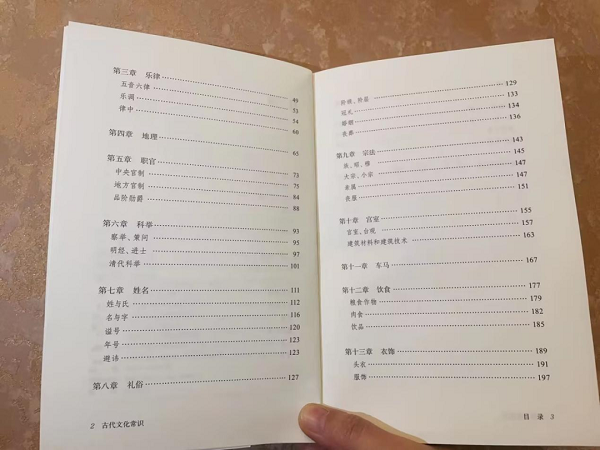 第三章 乐律 49
五音六律 53
乐调 54
律中 60
第四章 地理 65
第五章 职官 73
中央官制 75
地方官制 84
品阶勋爵 88
第六章 科举 93
察举、策问 95
明经、进士 97
清代科举 101
第七章 姓名 111
姓与氏 112
名与字 116
谥号 120
年号 123
避讳 123
第八章 礼俗 127
2 古代文化常识
阶级、阶层 129
冠礼 133
婚姻 134
丧葬 136
第九章 宗法 143
族、昭、穆 145
大宗、小宗 147
亲属 147
丧服 151
第十章 宫室 155
宫室、台观 157
建筑材料和建筑技术 163
第十一章 车马 167
第十二章 饮食 177
粮食作物 179
肉食 182
饮品 185
第十三章 衣饰 189
头衣 191
服饰 197
目录 3